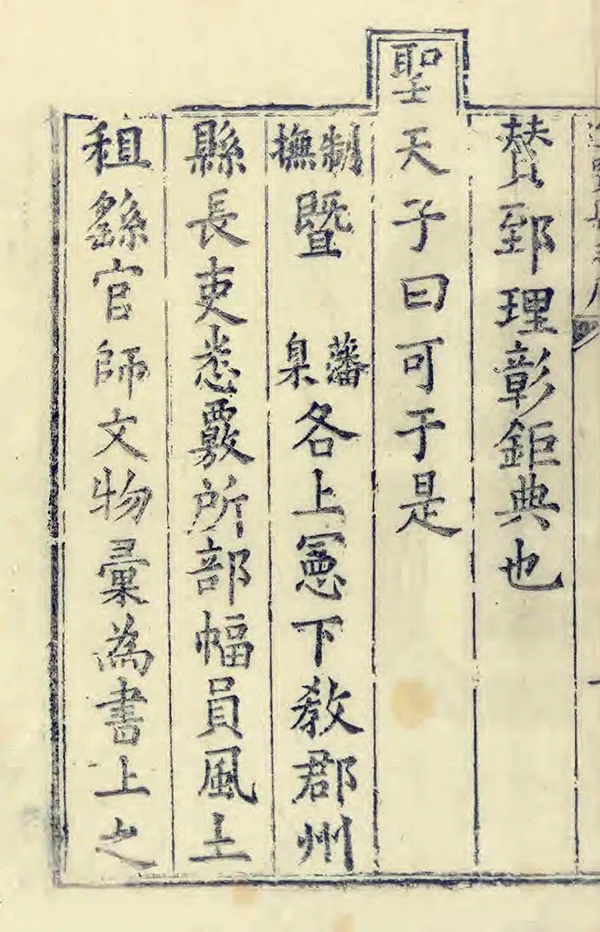 贊郅理彰鉅典也
聖天子曰可于是
制撫暨藩臬各上憲下教郡州
縣長吏悉覈所部幅員風土
租繇官師文物彙為書上之